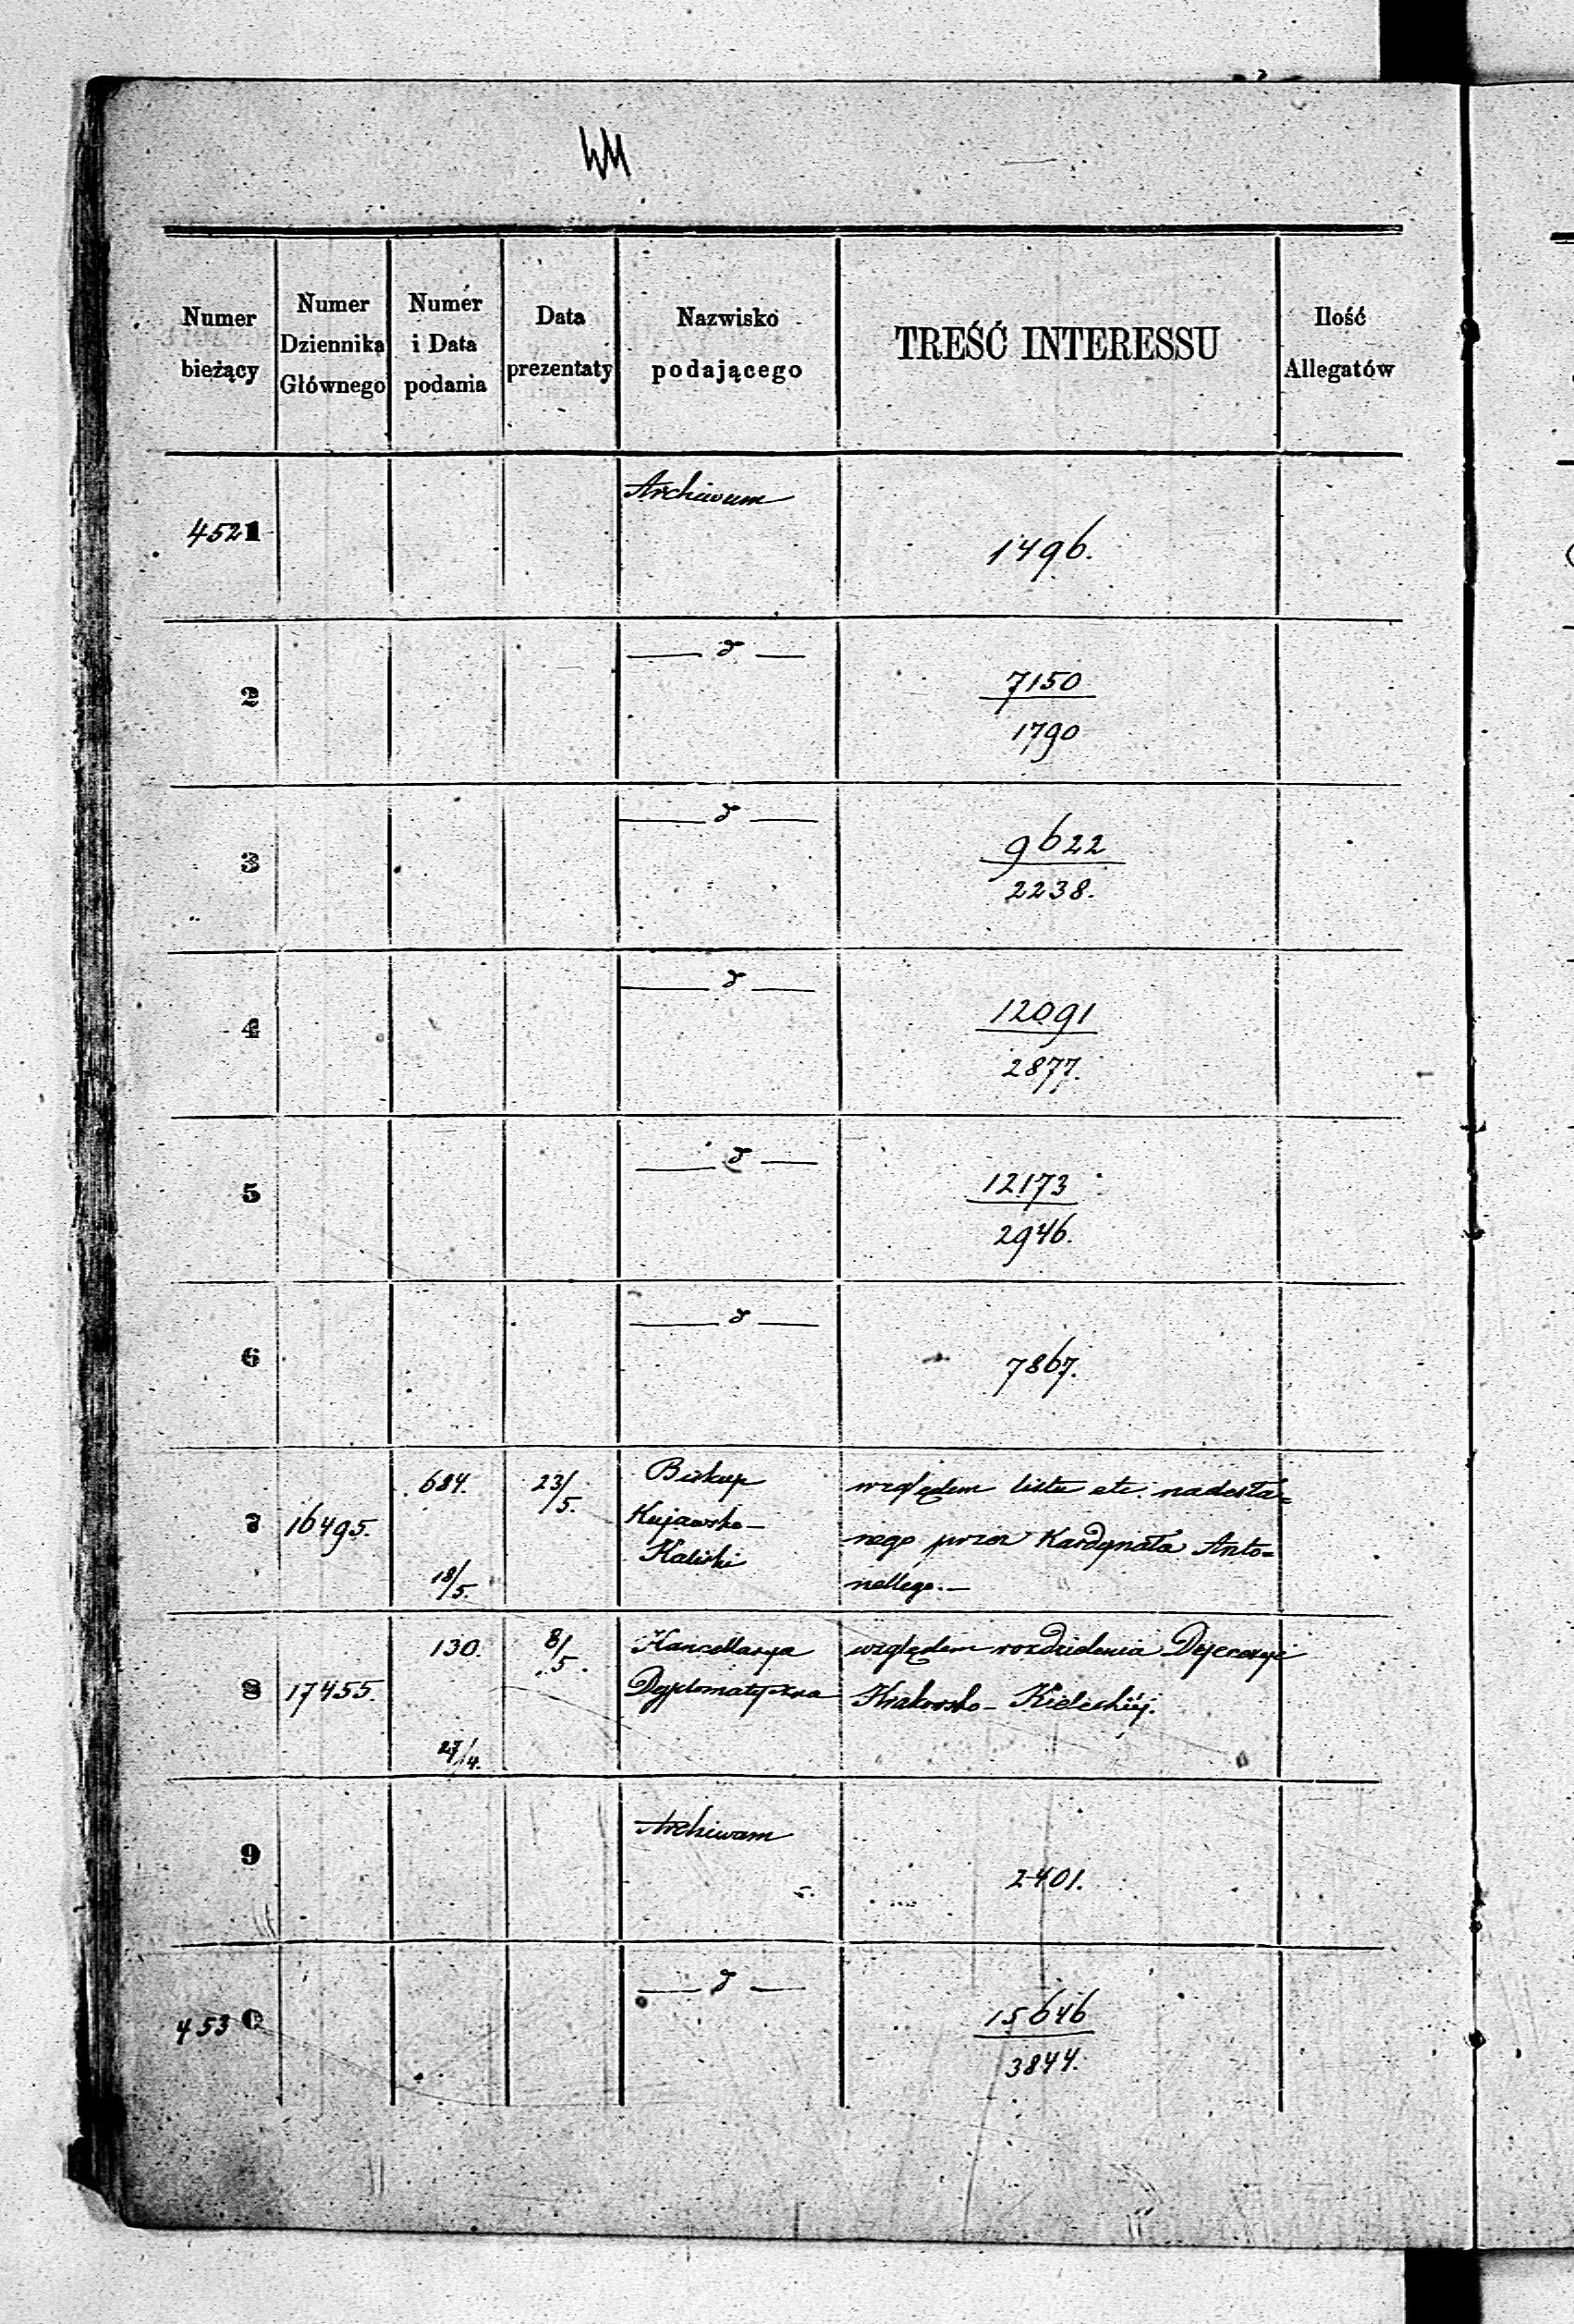 WM
Numer bieżący
Numer Dziennika Głównego
Numer i Data podania
Data prezentaty
Nazwisko podającego
TREŚĆ INTERESSU
Ilość Allegatów
4521 Archiwum 1496.
2 — d — 7150
1790
3 — d — 9622
2238.
4 — d — 12091
2877.
5 — d — 12173
2946.
6 — d — 7867.
7 16495. 684. 18/5. 23/5. Biskup Kujawsko-Kaliski
względem listu etc. nadesła=
nego przez Kardynała Anto=
nellego.—
8 17455. 130. 27/4. 8/5. Kancellarya Dyplomatyczna
względem rozdzielenia Dyecezyi
Krakowsko-Kieleckiéj.
9 Archiwum 2401.
4530 — d — 15646
3844.